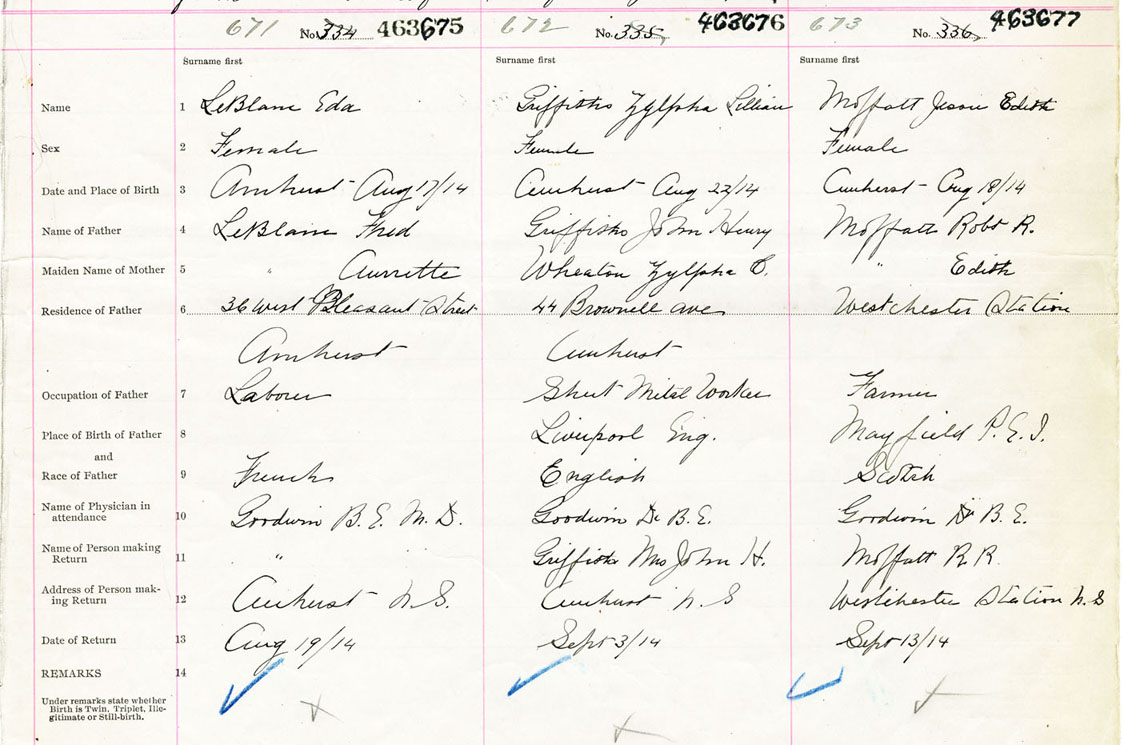 671 No. 334 463675 672 No. 335 463676 673 No. 336 463677
Surname first Surname first Surname first
Name 1 LeBlanc Eda Griffiths Zylpha Lillian Moffatt Jessie Edith
Sex 2 Female Female Female
Date and Place of Birth 3 Amherst - Aug 17/14 Amherst - Aug 22/14 Amherst - Aug 18/14
Name of Father 4 LeBlanc Fred Griffiths John Henry Moffatt Robt R.
Maiden Name of Mother 5 " Wheaton Zylpha C. " Edith
Residence of Father 6 36 West Pleasant Street 44 Brownell Ave Westchester Station
Amherst Amherst
Occupation of Father 7 Laborer Sheet Metal Worker Farmer
Place of Birth of Father 8 Liverpool Eng. Mayfield P.E.I.
and
Race of Father 9 French English Scotch
Name of Physician in
attendance 10 Goodwin B.E. M.D. Goodwin Dr B.E. Goodwin Dr B.E.
Name of Person making
Return 11 " Griffiths Mrs John H. Moffatt R R.
Address of Person mak-
ing Return 12 Amherst N.S. Amherst N.S Westchester Station N.S
Date of Return 13 Aug 19/14 Sept 3/14 Sept 13/14
REMARKS 14
Under remarks state whether
Birth is Twin, Triplet, Ille-
gitimate or Still-birth.